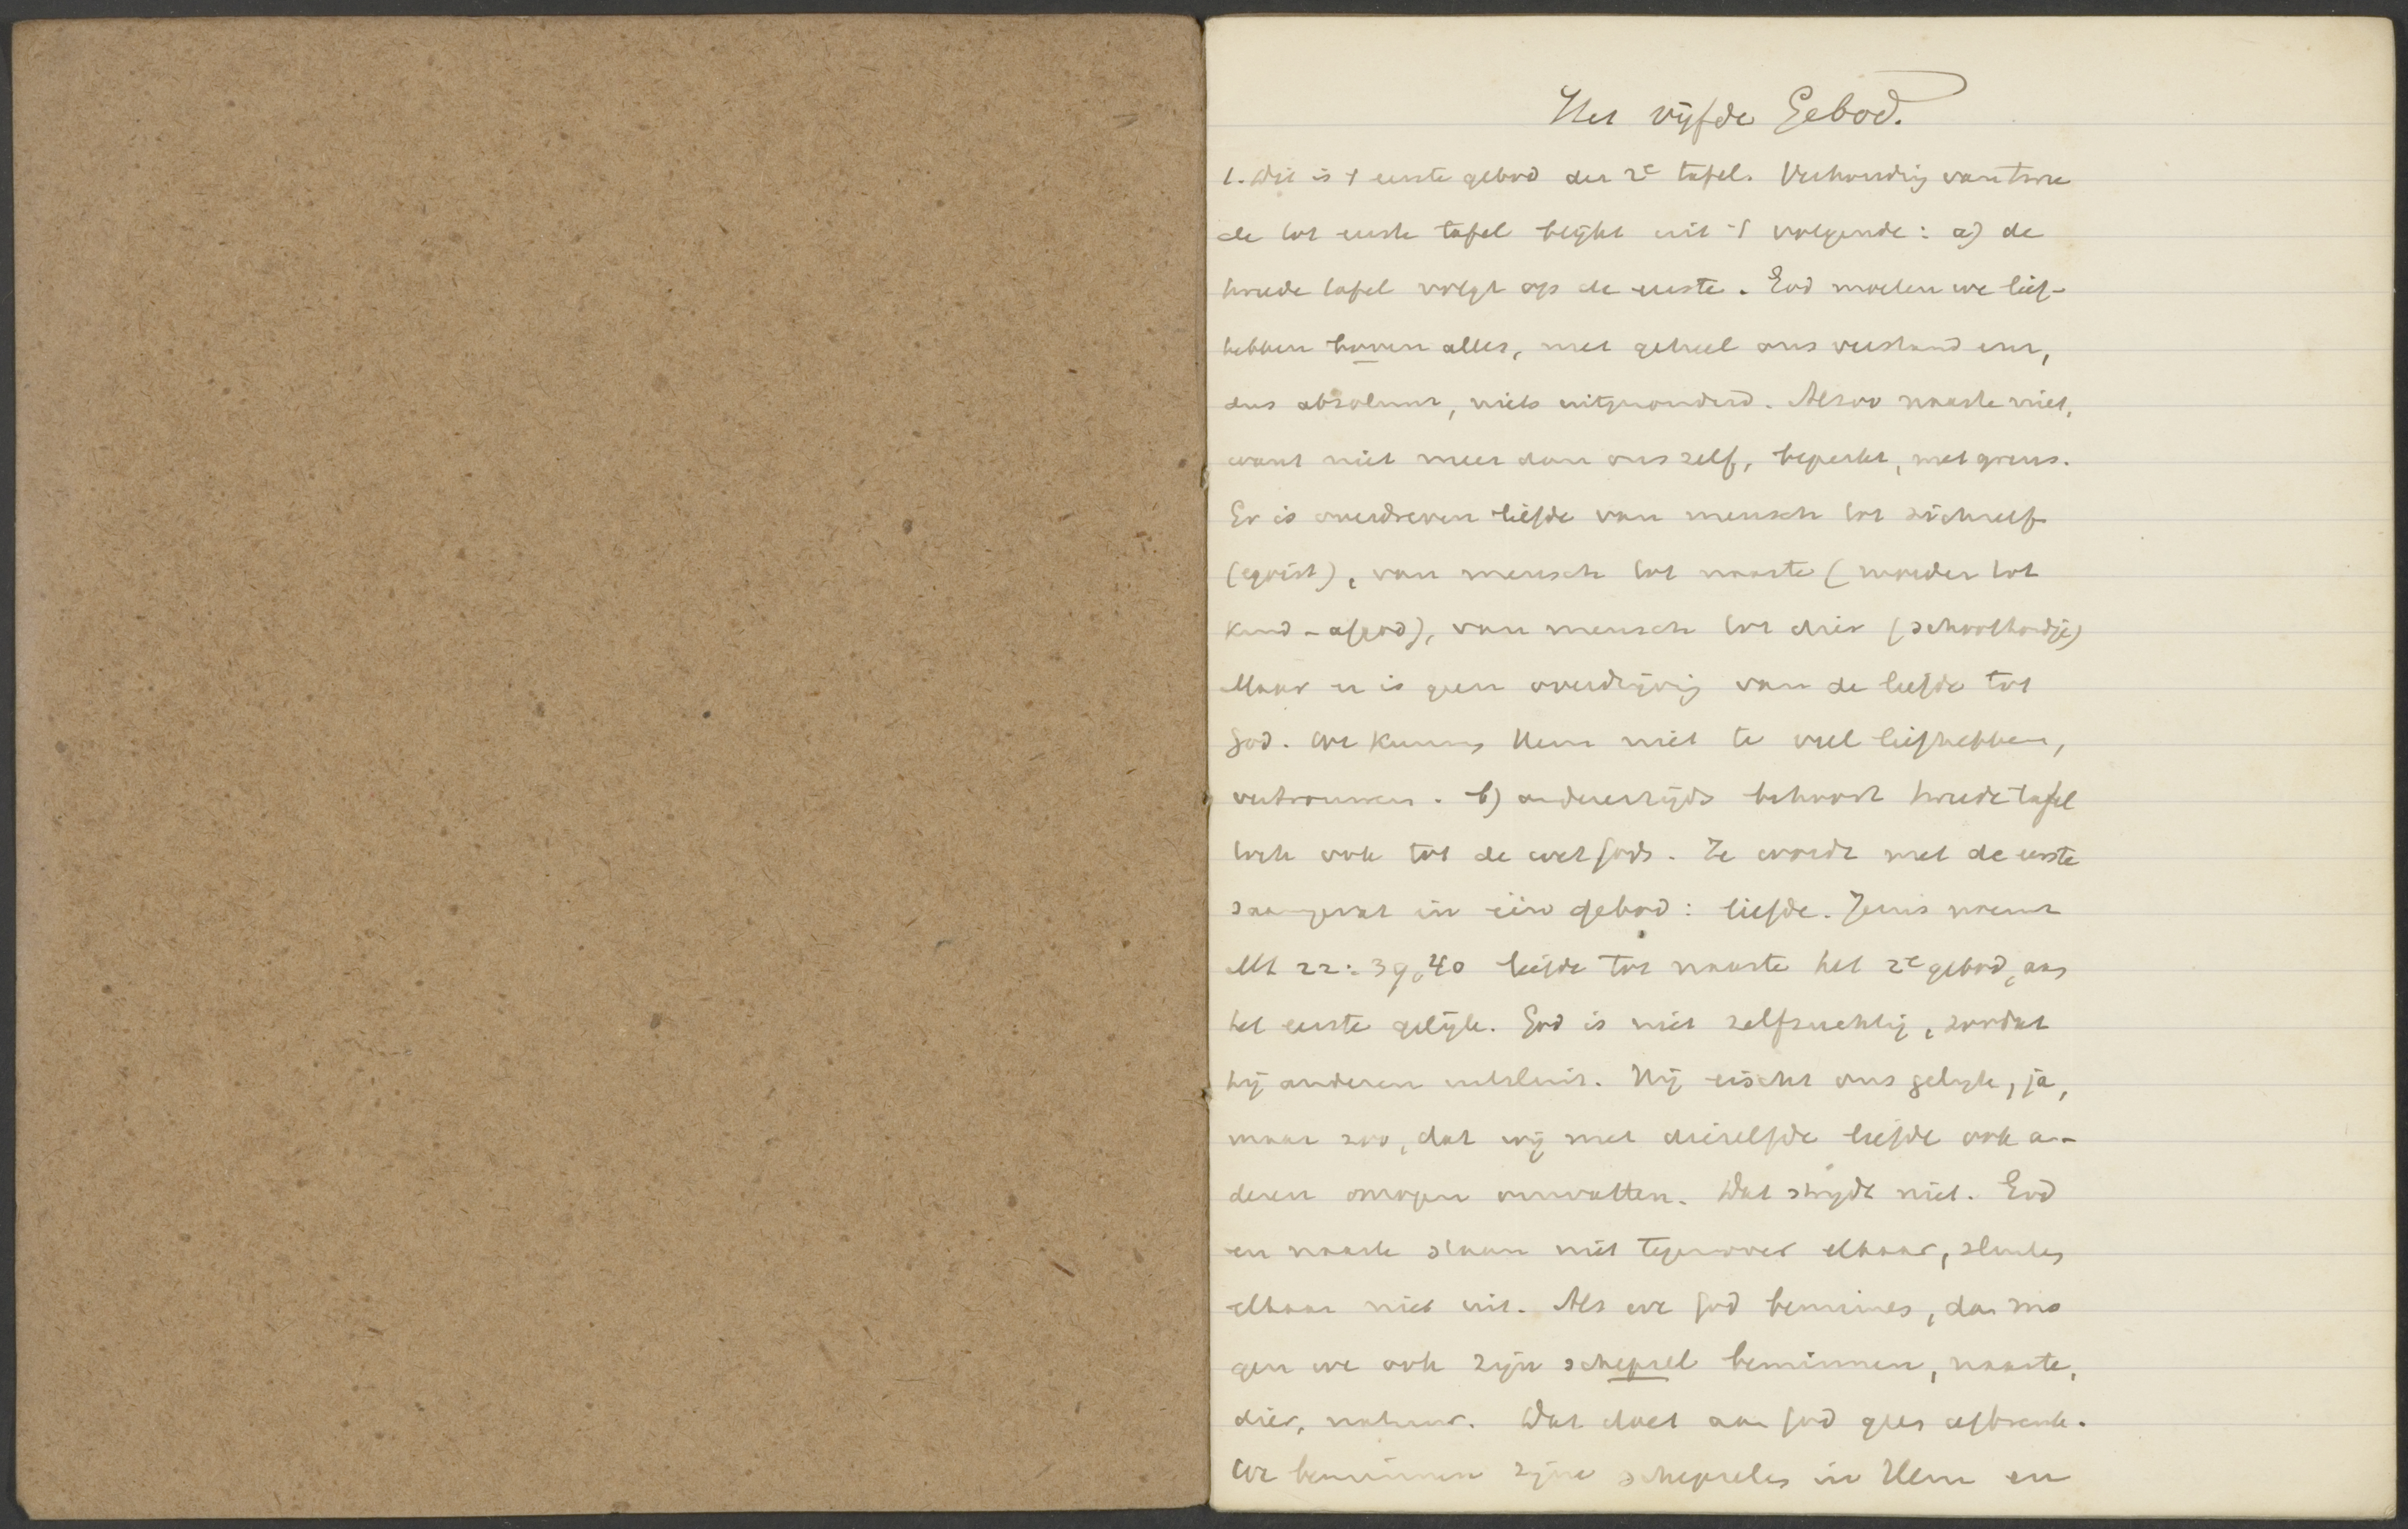 Het vijfde Gebod.
1. Dit is 't eerste gebod der 2e tafel. Verhouding van twee
de tot eerste tafel blijkt uit 't volgende: a) de
tweede tafel volgt op de eerste. God moeten we lief-
hebben boven alles, met geheel ons verstand enz,
dus absoluut, niets uitgezonderd. Alzoo naaste niet,
want niet meer dan ons zelf, beperkt, met grens.
Er is overdreven liefde van mensch tot zichzelf
(egoist), van mensch tot naaste (moeder tot
kind - afgod), van mensch tot dier (schoothondje)
Maar er is geen overdrijving van de liefde tot
God. We kunnen Hem niet te veel liefhebben,
vertrouwen. b) anderzijds behoort tweede tafel
toch ook tot de wet Gods. Ze wordt met de eerste
saamgevat in één gebod: liefde. Jezus noemt
Mt 22:39,40 liefde tot naaste het 2e gebod, aan
het eerste gelijk. God is niet zelfzuchtig, zoodat
hij anderen uitsluit. Hij eischt ons geheele, ja,
maar zoo, dat wij met diezelfde liefde ook an-
deren mogen omvatten. Dat strijdt niet. God
en naaste staan niet tegenover elkaar, sluiten
elkaar niet uit. Als we God beminnen, dan mo
gen we ook zijn schepsel beminnen, naaste,
dier, natuur. Dat doet aan God geen afbreuk.
We beminnen zijne schepselen in Hem en